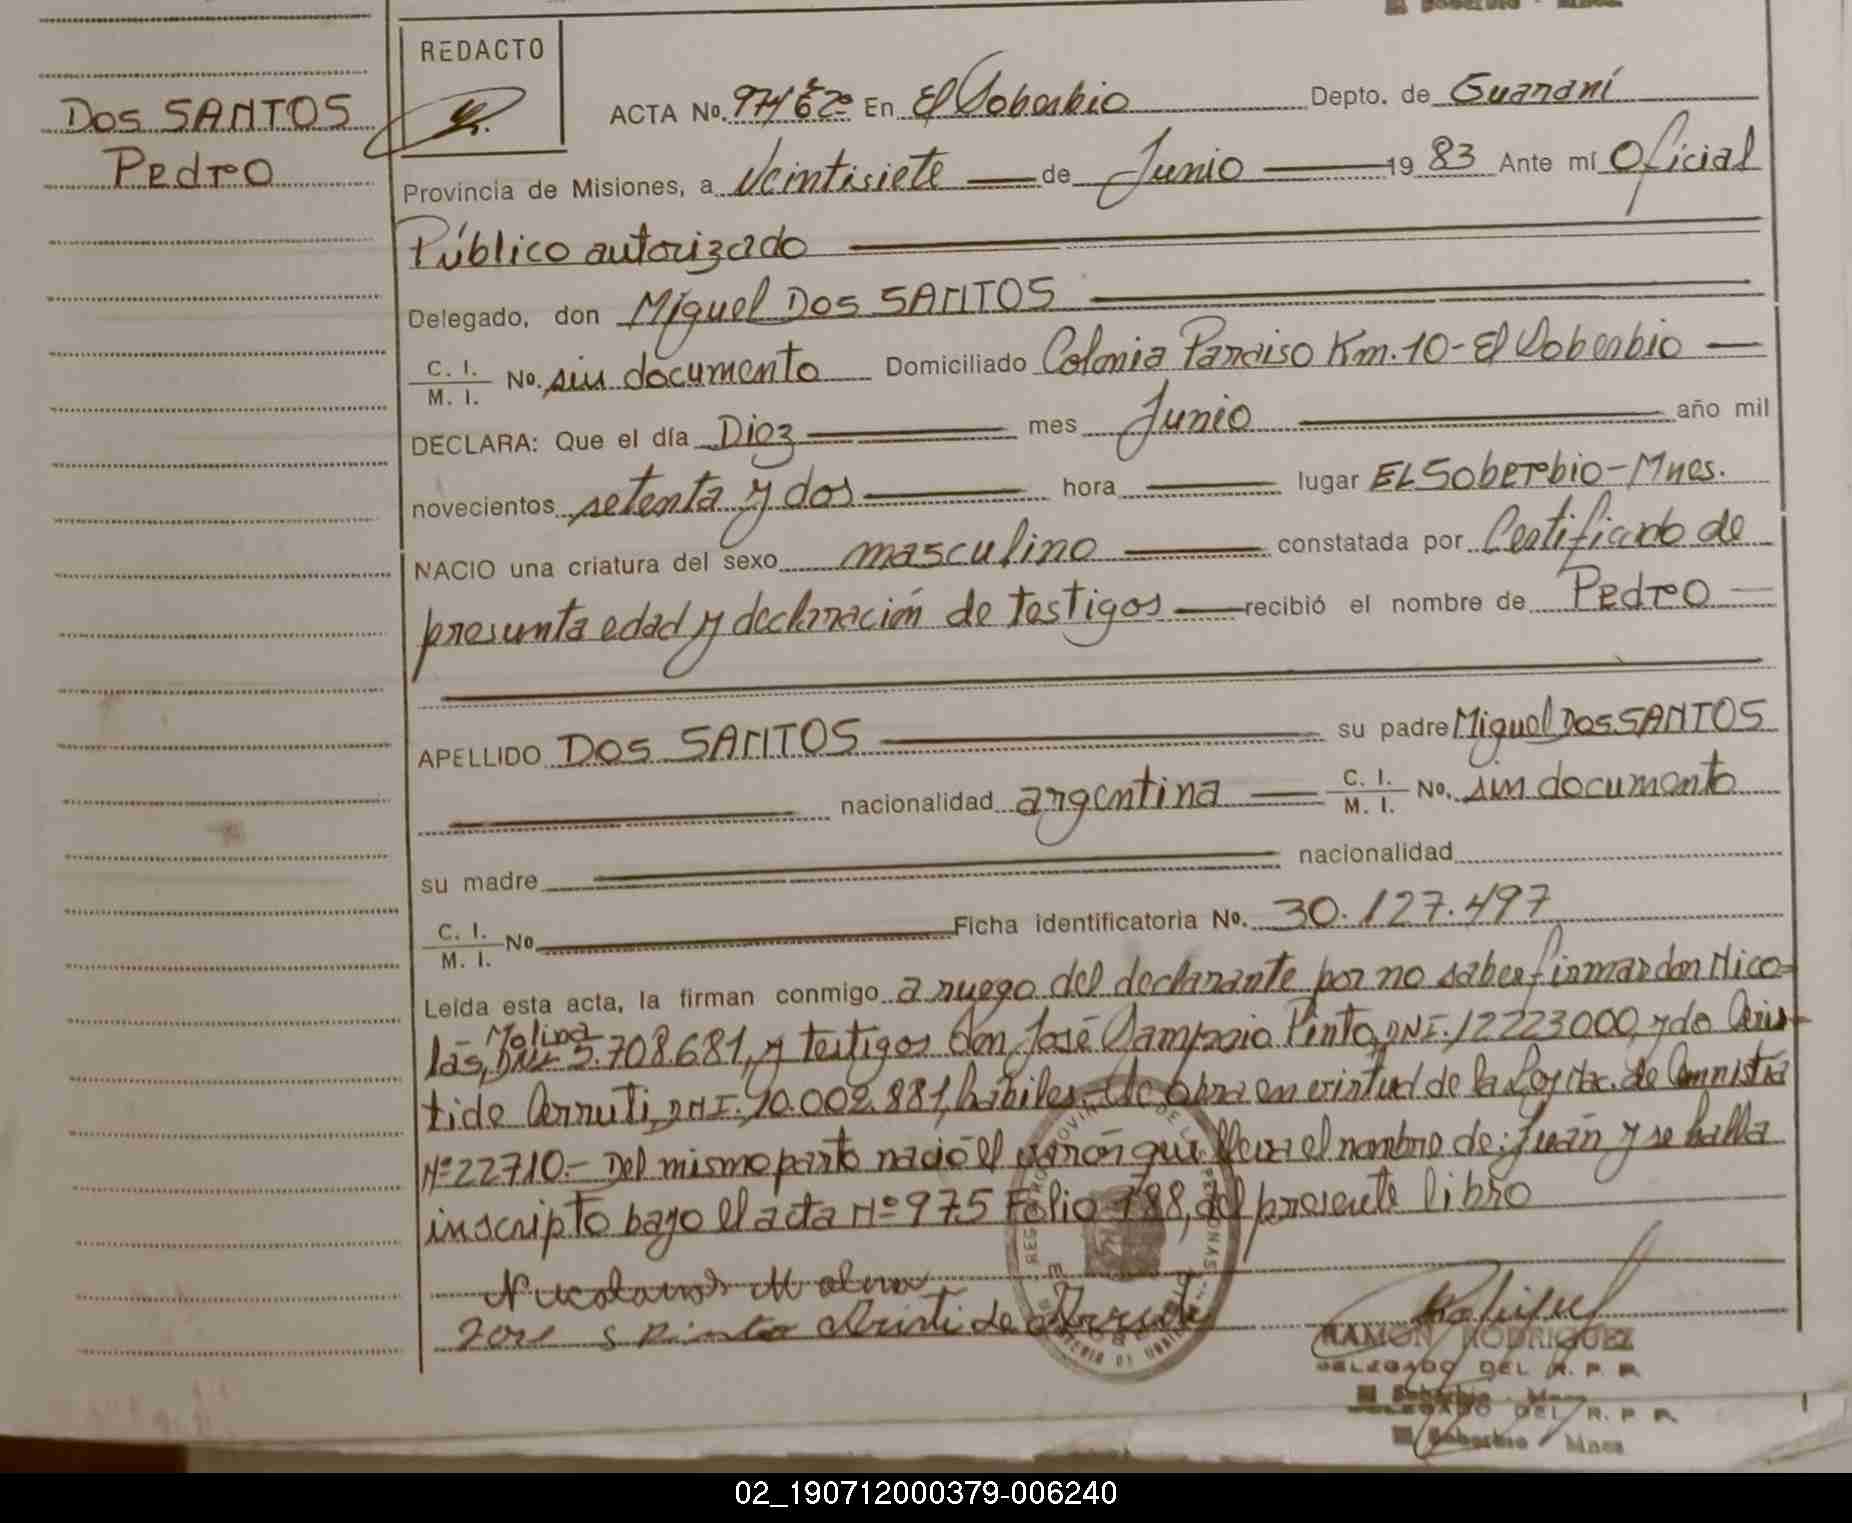 REDACTO
DOS SANTOS
Pedro
ACTA No. 974 En El Soberbio Depto. de Guaraní
Provincia de Misiones, a Veintisiete de Junio 19 83 Ante mí Oficial
Público autorizado
Delegado, don Miguel DOS SANTOS
C. I.
M. I. No. sin documento Domiciliado Colonia Paraiso Km. 10 - El Soberbio
DECLARA: Que el día Diez mes Junio año mil
novecientos setenta y dos hora lugar EL Soberbio - Mnes.
NACIO una criatura del sexo masculino constatada por Certificado de
presunta edad y declaración de testigos recibió el nombre de Pedro
APELLIDO DOS SANTOS su padre Miguel DOS SANTOS
nacionalidad argentina C. I.
M. I. No. sin documento
su madre nacionalidad
C. I.
M. I. No Ficha identificatoria No. 30.127.497
Leída esta acta, la firman conmigo a ruego del declarante por no saber firmar don Nico=
lás, Molina DNI. 5.708.681, y testigos don José Sampaio Pinto, DNI. 12223000, y do Cris-
tide Cerruti, DNI. 90.002.881, hábiles. Se obra en virtud de la Ley de Amnistía
Nº 22710.- Del mismo parto nació el varón que lleva el nombre de: Juán y se halla
inscripto bajo el acta Nº 975 Folio 188, del presente libro
RAMON RODRIGUEZ
DELEGADO DEL R. P. P.
El Soberbio - Mnes
DELEGADO DEL R. P. P.
El Soberbio Mnes
02_190712000379-006240